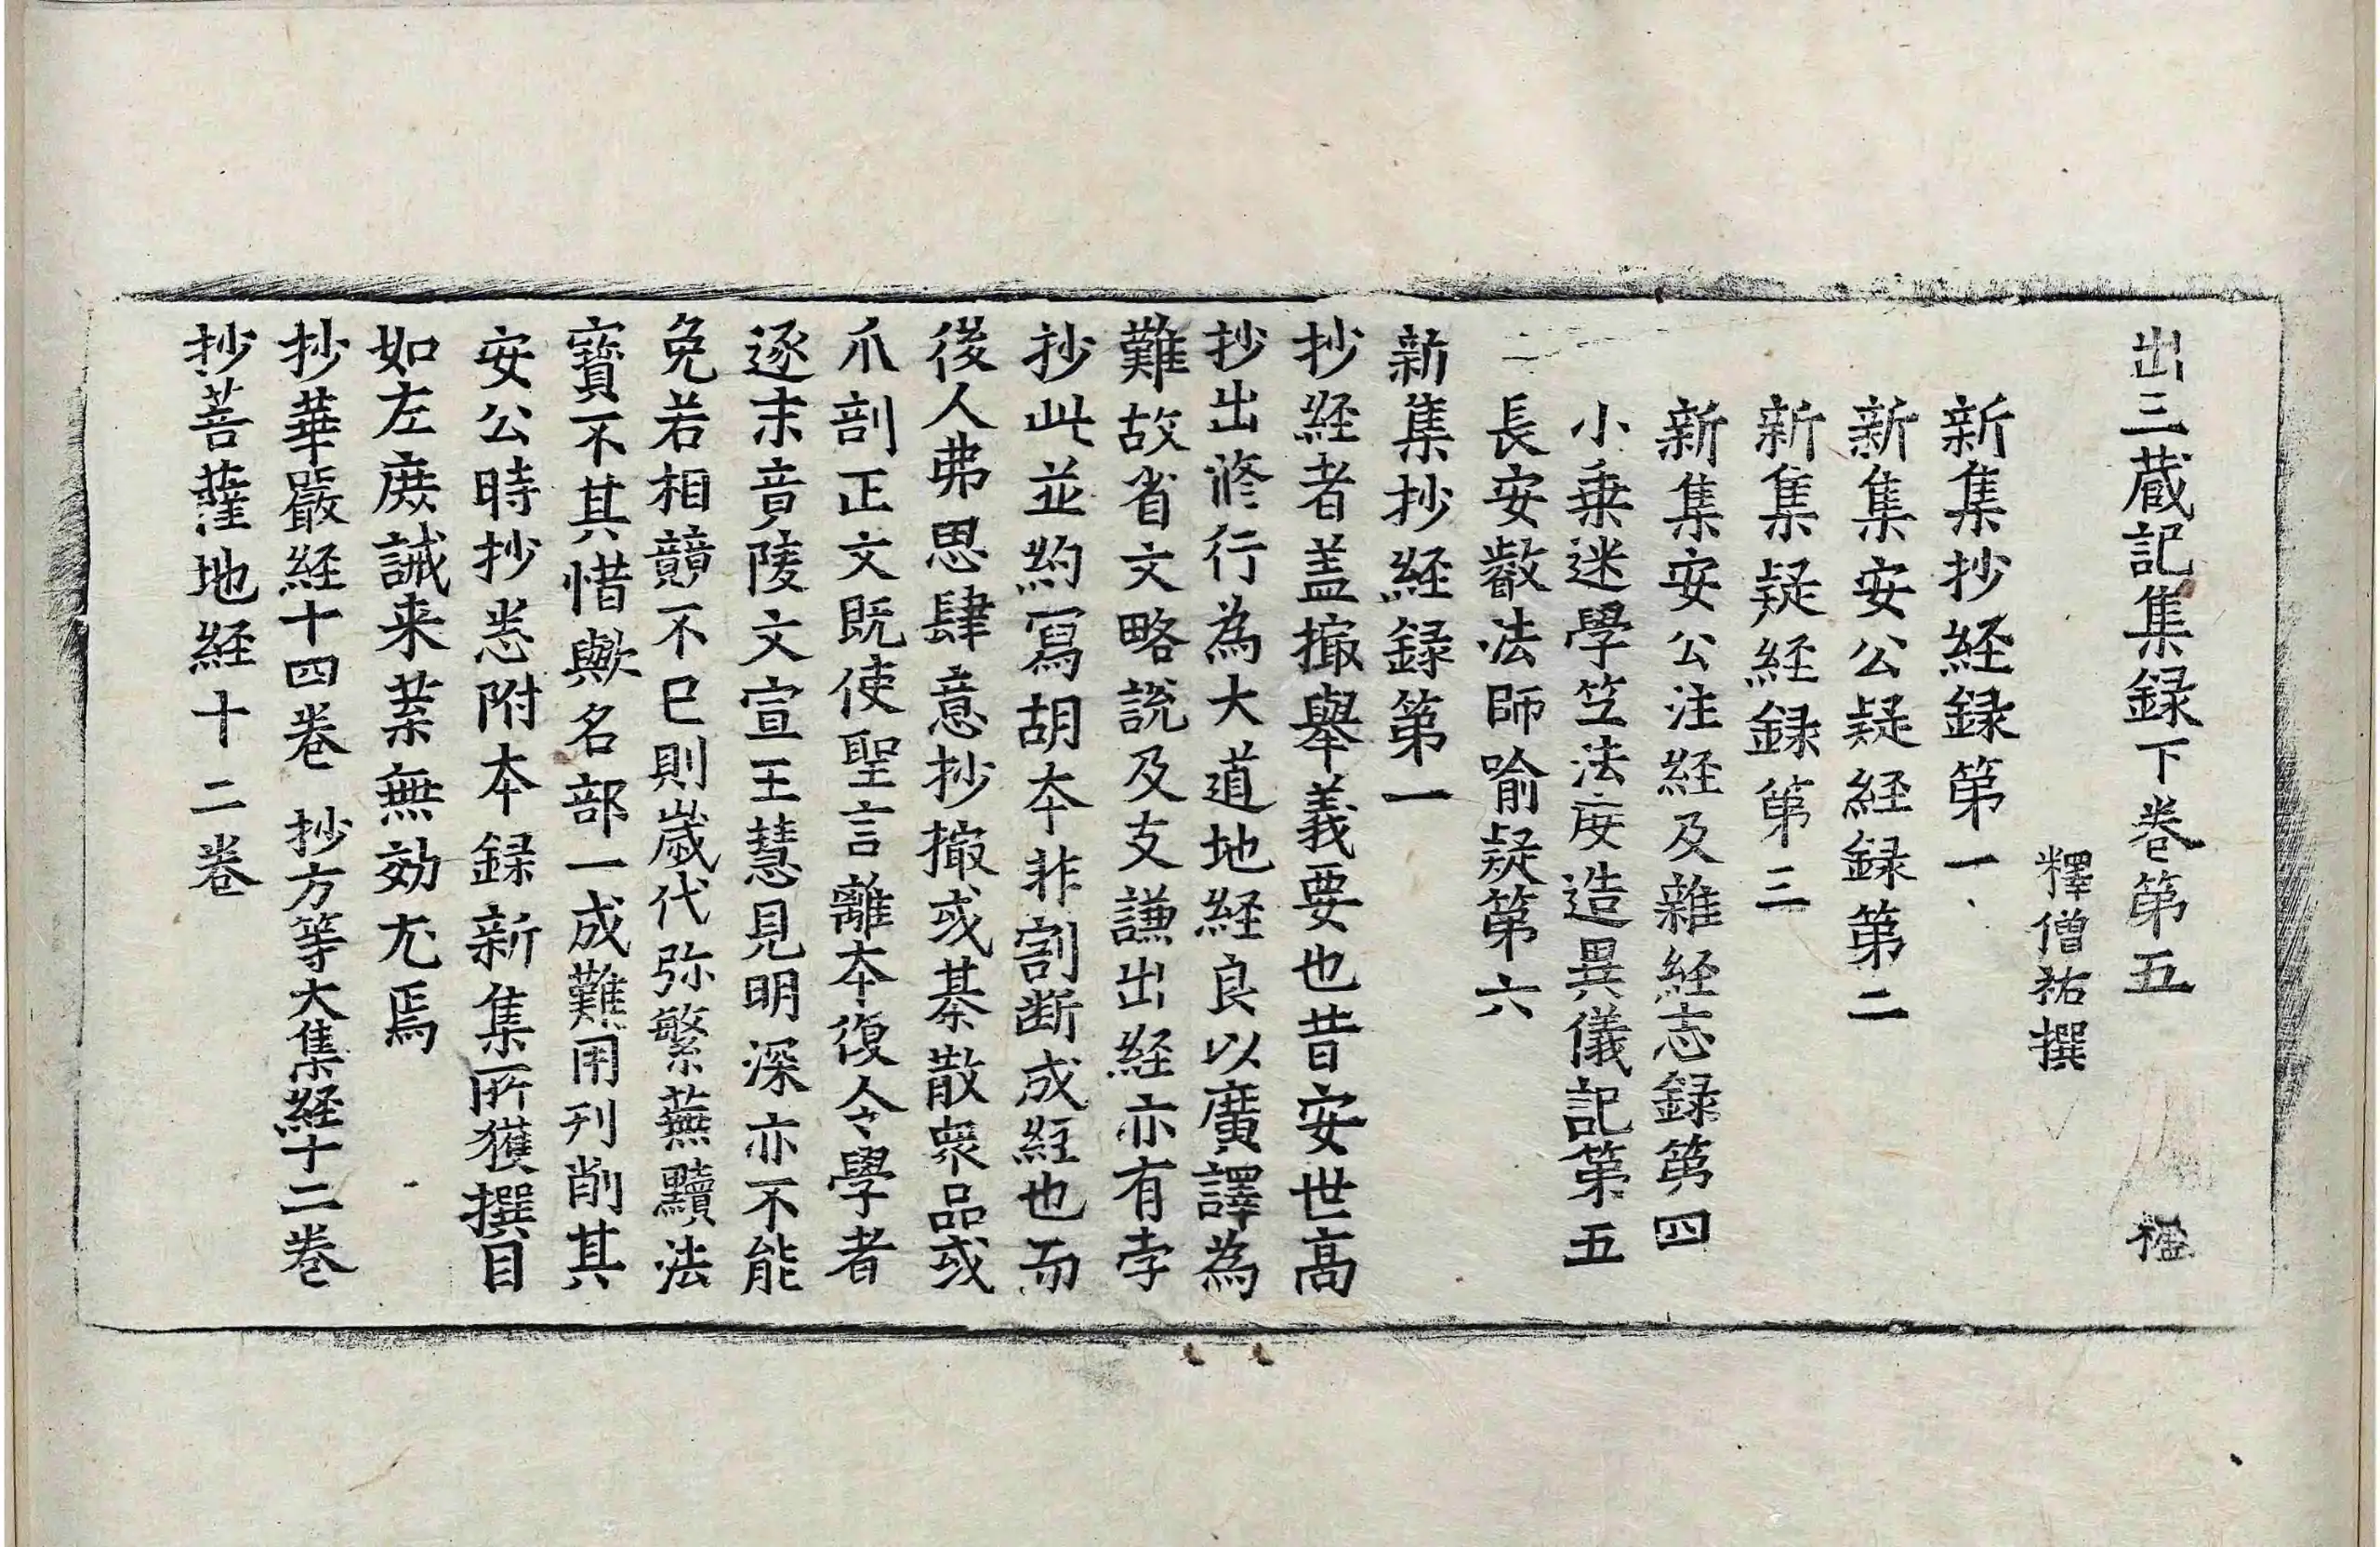 出三蔵記集録下巻第五
釋僧祐撰
新集抄経録第一
新集安公疑経録第二
新集疑経録第三
新集安公注経及雜経志録第四
小乗迷學竺法度造異儀記第五
長安叡法師喻疑第六
新集抄経録第一
抄経者盖撮舉義要也昔安世髙
抄出修行為大道地経良以廣譯為
難故省文略説及支謙出経亦有孛
抄此並約寫胡夲非割断成経也而
後人弗思肆意抄撮或棊散衆品或
爪剖正文既使聖言離夲復令學者
逐末竟陵文宣王慧見明深亦不能
免若相競不已則歲代弥繁蕪黷法
寶不其惜歟名部一成難用刊削其
安公時抄悉附夲録新集所獲撰目
如左庶誡来葉無効尤焉
抄華嚴経十四巻　抄方等大集経十二巻
抄菩薩地経十二巻